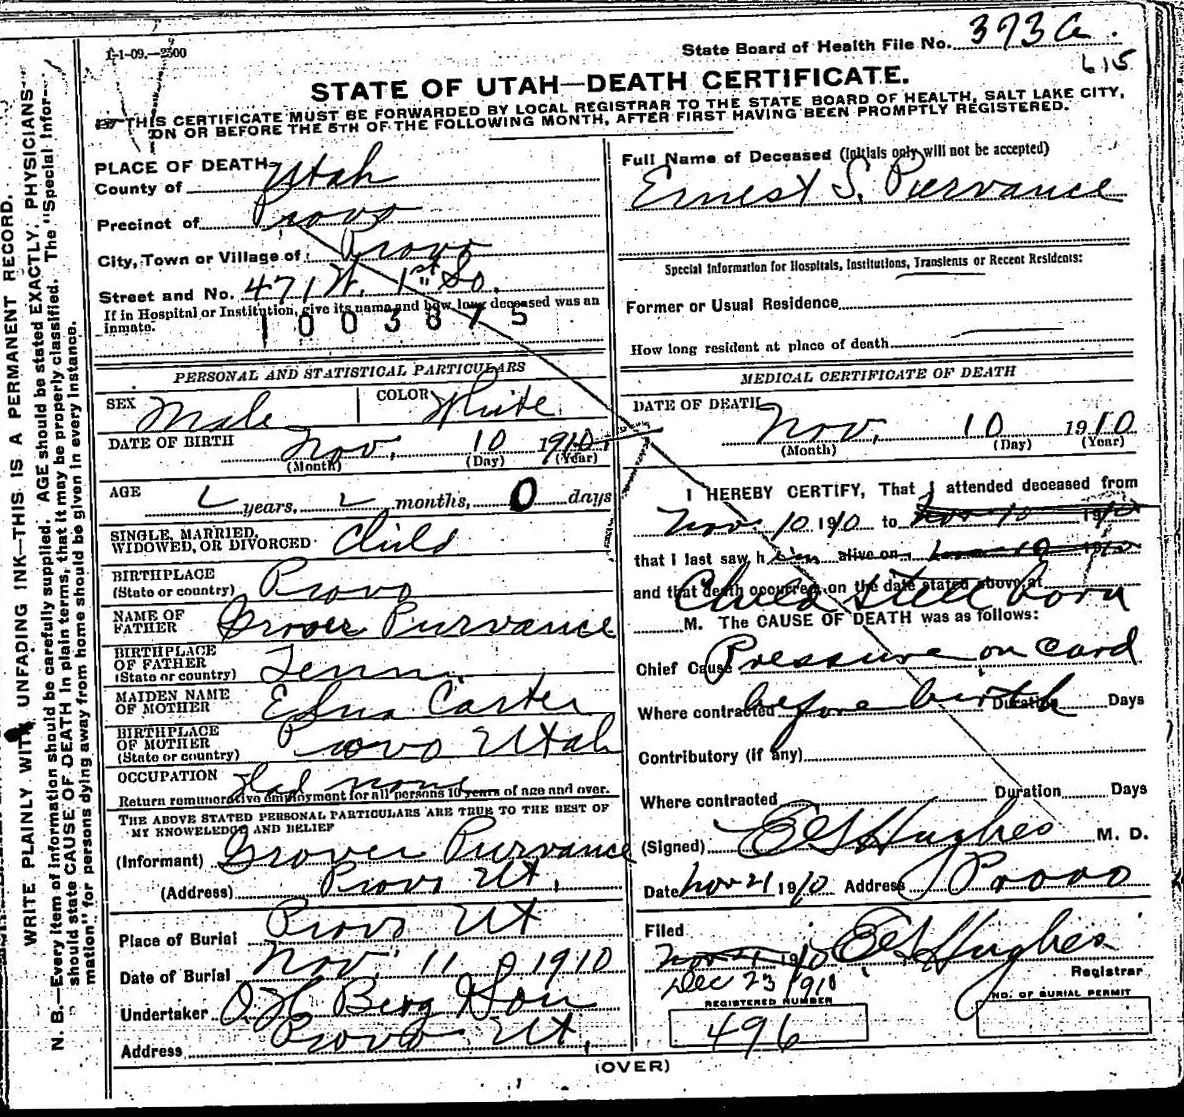 1-1-09.—2500
State Board of Health File No. 373 a.
615
STATE OF UTAH—DEATH CERTIFICATE.
THIS CERTIFICATE MUST BE FORWARDED BY LOCAL REGISTRAR TO THE STATE BOARD OF HEALTH, SALT LAKE CITY,
ON OR BEFORE THE 5TH OF THE FOLLOWING MONTH, AFTER FIRST HAVING BEEN PROMPTLY REGISTERED.
WRITE PLAINLY WITH UNFADING INK—THIS IS A PERMANENT RECORD.
N. B.—Every item of information should be carefully supplied. AGE should be stated EXACTLY. PHYSICIANS
should state CAUSE OF DEATH in plain terms, that it may be properly classified. The "Special Infor-
mation" for persons dying away from home should be given in every instance.
PLACE OF DEATH
County of Utah
Precinct of Provo
City, Town or Village of Provo
Street and No. 471 W. 1st So.
If in Hospital or Institution, give its name and how long deceased was an
inmate.
1003875
PERSONAL AND STATISTICAL PARTICULARS
SEX Male COLOR White
DATE OF BIRTH Nov. 10 1910
(Month) (Day) (Year)
AGE years, months, 0 days
SINGLE, MARRIED,
WIDOWED, OR DIVORCED Child
BIRTHPLACE
(State or country) Provo
NAME OF
FATHER Grover Purvance
BIRTHPLACE
OF FATHER
(State or country) Tenn.
MAIDEN NAME
OF MOTHER Edna Carter
BIRTHPLACE
OF MOTHER
(State or country) Provo Utah
OCCUPATION Had none
Return remunerative employment for all persons 10 years of age and over.
THE ABOVE STATED PERSONAL PARTICULARS ARE TRUE TO THE BEST OF
MY KNOWELEDGE AND BELIEF
(Informant) Grover Purvance
(Address) Provo Ut.
Place of Burial Provo Ut
Date of Burial Nov. 11 1910
Undertaker O. H. Berg & Son
Address Provo Ut.
Full Name of Deceased (Initials only will not be accepted)
Ernest S. Purvance
Special Information for Hospitals, Institutions, Transients or Recent Residents:
Former or Usual Residence
How long resident at place of death
MEDICAL CERTIFICATE OF DEATH
DATE OF DEATH
Nov. 10 1910
(Month) (Day) (Year)
I HEREBY CERTIFY, That I attended deceased from
Nov. 10 1910 to Nov 10 1910
that I last saw h im alive on 10 1910
and that death occurred on the date stated above, at
Child still born
M. The CAUSE OF DEATH was as follows:
Chief Cause Pressure on cord
Where contracted before birth Duration Days
Contributory (if any)
Where contracted Duration Days
(Signed) E G Hughes M. D.
Date Nov 21 1910 Address Provo
Filed
Nov 1910 E G Hughes
Dec 23 1910 Registrar
REGISTERED NUMBER
496
NO. OF BURIAL PERMIT
(OVER)